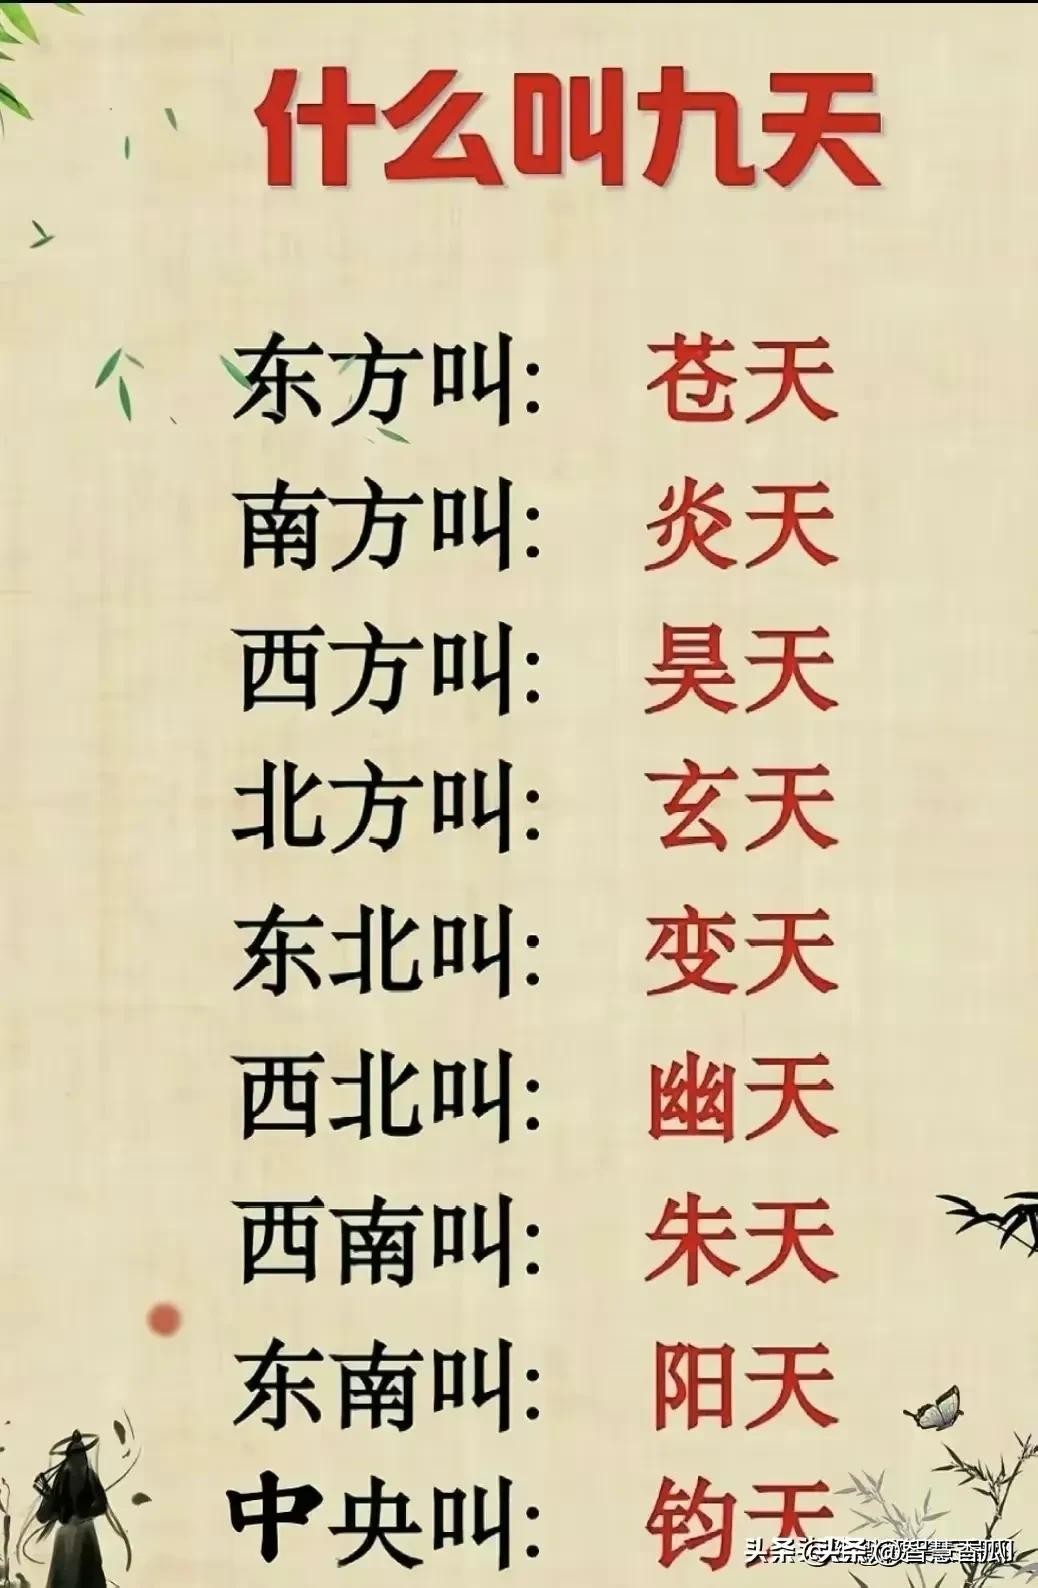 什么叫九天
东方叫: 苍天
南方叫: 炎天
西方叫: 昊天
北方叫: 玄天
东北叫: 变天
西北叫: 幽天
西南叫: 朱天
东南叫: 阳天
中央叫: 钧天
头条 @智慧香瓜